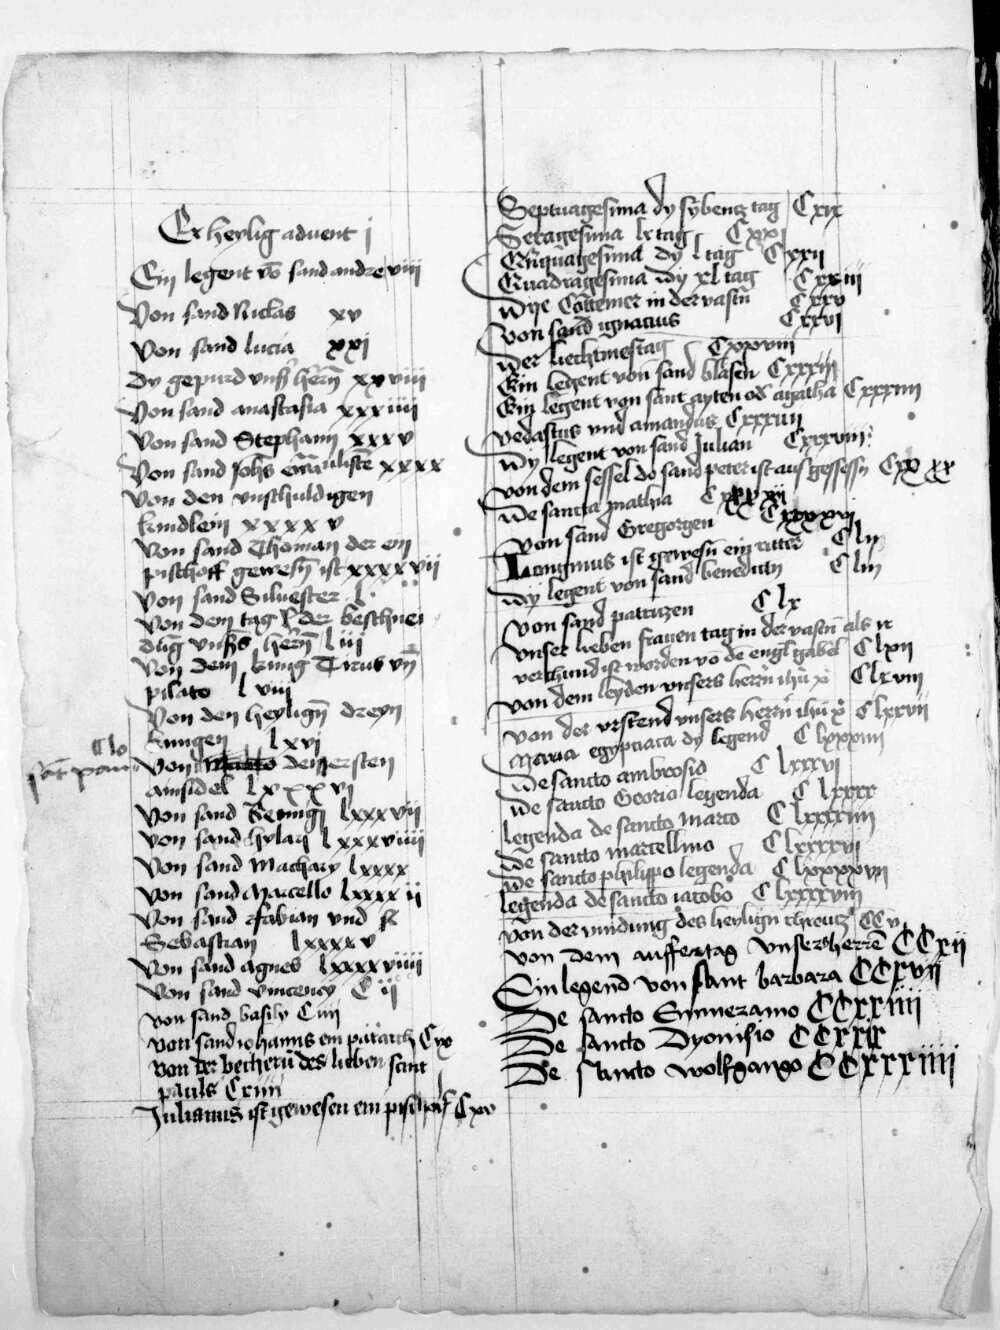 Er heylig advent j
Ein legent vō sand andre viii
Von sand Niclas xv
Von sand lucia xxj
Dy gepurd vnsß hērn̄ xxviii
Von sand anastasia xxxiiii
Von sand Stephann xxxv
Von sand Johs ewāulistē xxxx
Von den vnschuldigen
kindlein xxxxv
Von sand Thoman der ein
pischoff gewesn̄ ist xxxxvii
Von sand Siluester l
Von dem tag der beschnei
dūg vnßs hērn̄ liii
Von dem kunig Tirus vn̄
pilato lviii
Von den heylign̄ dreyn
kungen lxvi
Von dem ersten
ainsidel lxxxvi
Von sand Remigi lxxxvii
Von sand hylarj lxxxviiii
Von sand Machary lxxxx
Von sand Marcello lxxxxii
Von sand fabian vnd s
Sebastian lxxxxv
Von sand agnes lxxxxviiii
Von sand vincency C ii
von sand basily Ciiii
von sand iohanns ein patarch Cix
von der becherū des lieben sant
pauls Cxiiii
Julianus ist gewesen ein pischolf Cxv
Septuagesima dy sybentz tag Cxix
Sexagesima lx tag Cxxj
Qn̄quagesima dy l tag Cxxii
Quadragesima dy xl tag Cxxiii
Dye Cottemer in der vastn̄ Cxxv
von sand ignacius Cxxvi
Der liechtmestag Cxxviii
Ein legent von sand blasen Cxxxiii
Ein legent von sant ayten od agatha Cxxxiiii
vedastus vnd amandus Cxxxviii
Dy legent von sand Julian Cxxxviiii
von dem sessel do sand peter ist auf gesessn̄ Cxxxx
De sancta mathia
von sand Gregorgen Cxxxxvi
Longinus ist gewesn̄ ein ritter Clii
Dy legent von sand benedictn Cliii
von sand patrizen Clx
vnser lieben frauen tag in der vastn̄ als ir
verchund ist worden vō dē engl gabēl Clxii
von dem leyden vnsers herrn̄ ihū x̄ Clxviii
von der vrstend vnsers herrn̄ ihū x̄ Clxxvii
Maria egypciaca dy legend Clxxxiiii
De sancto ambrosio Clxxxvi
De sancto Georio legenda Clxxxx
legenda de sancto marco Clxxxxiiii
De sancto marcellino Clxxxxvi
De sancto philippo legenda Clxxxxvii
legenda de sancto iacobo Clxxxxviii
von der vindung des heylign̄ chreutz CCv
von dem auffertag vnsers herrē CCxii
Ein legend von sant barbara CCxvii
De sancto Emmeramo CCxxiiii
De sancto Dyonisio CCxxix
De sancto wolfgango CCxxxiiii